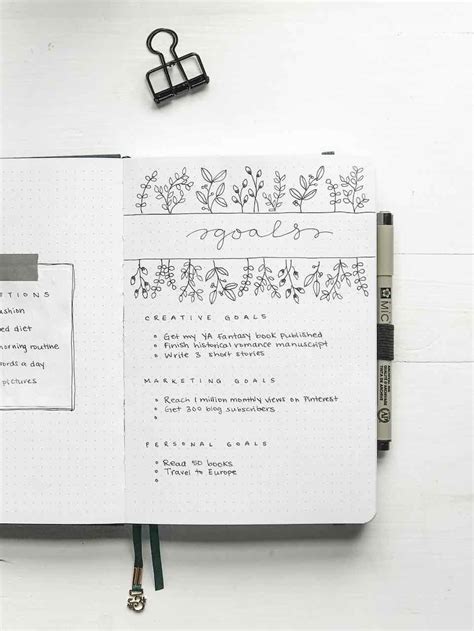 TIONS
ashion
ed diet
orning routine
ords a day
pictures
goals
CREATIVE GOALS
Get my YA Fantasy book published
Finish historical romance manuscript
Write 3 short stories
MARKETING GOALS
Reach 1 million monthly views on Pinterest
Get 300 blog subscribers
PERSONAL GOALS
Read 50 books
Travel to Europe
MIC